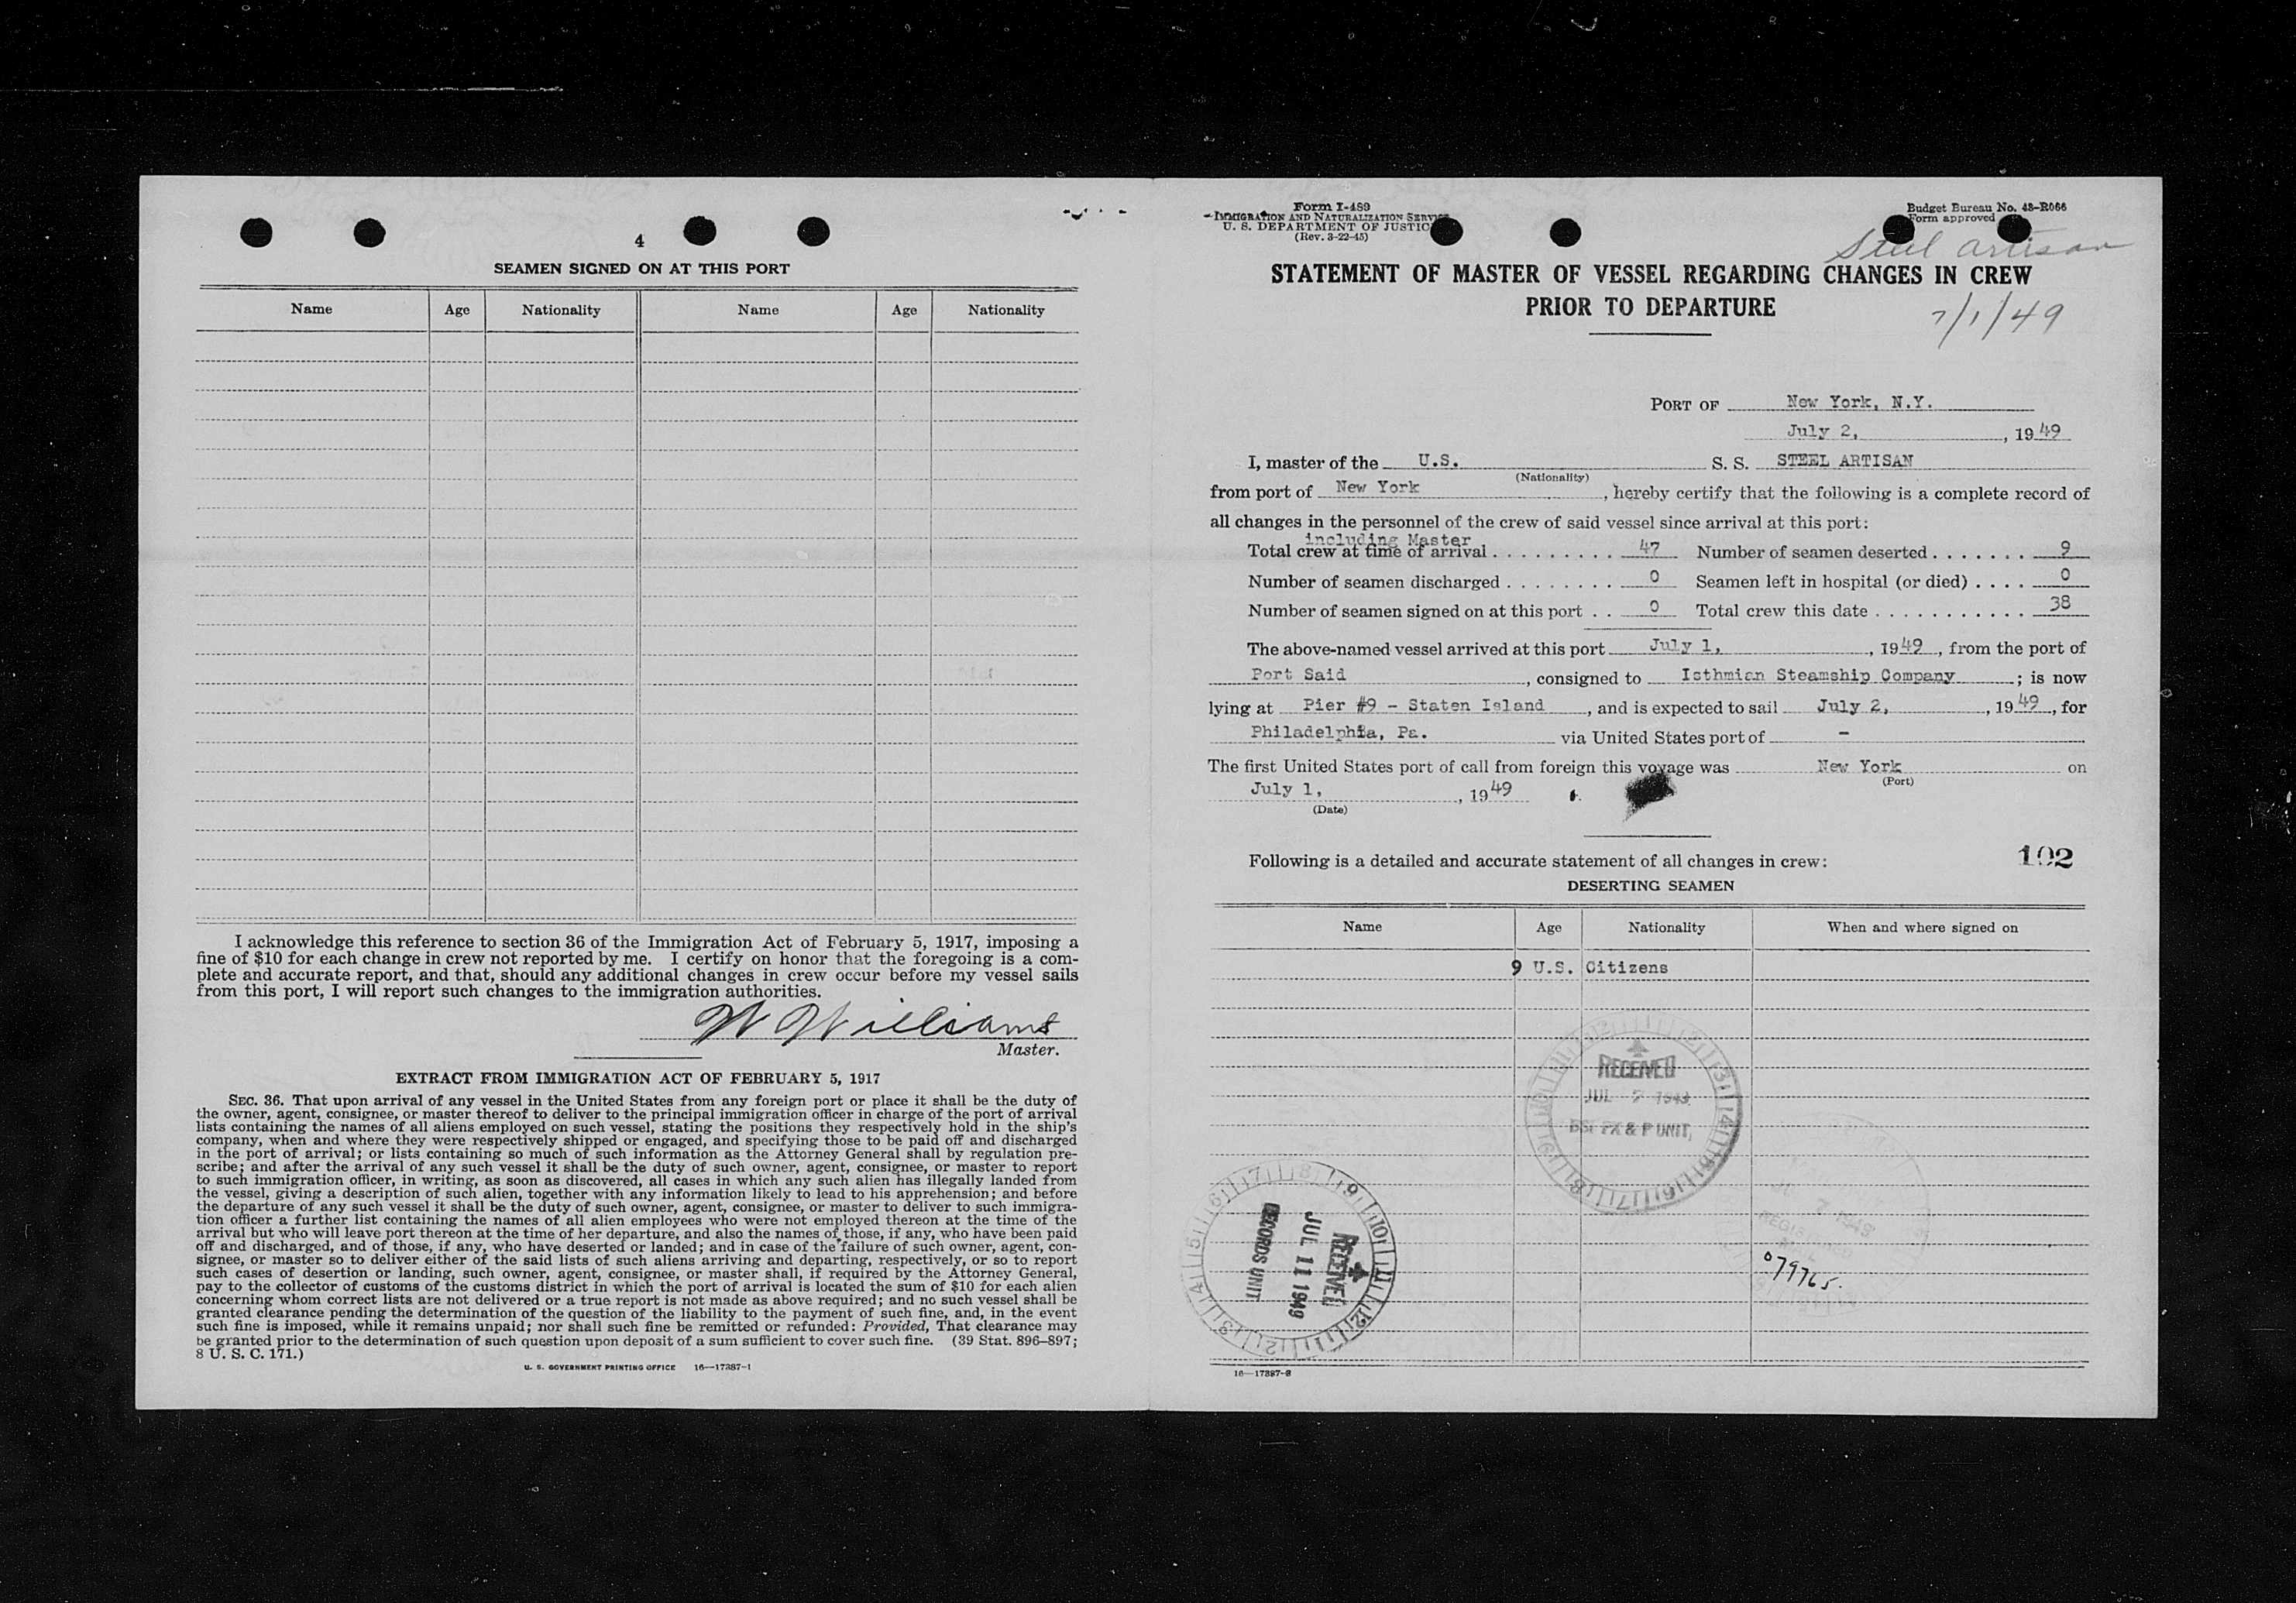 4
SEAMEN SIGNED ON AT THIS PORT
Name Age Nationality Name Age Nationality
I acknowledge this reference to section 36 of the Immigration Act of February 5, 1917, imposing a
fine of $10 for each change in crew not reported by me. I certify on honor that the foregoing is a com-
plete and accurate report, and that, should any additional changes in crew occur before my vessel sails
from this port, I will report such changes to the immigration authorities.
W Williams
Master.
EXTRACT FROM IMMIGRATION ACT OF FEBRUARY 5, 1917
SEC. 36. That upon arrival of any vessel in the United States from any foreign port or place it shall be the duty of
the owner, agent, consignee, or master thereof to deliver to the principal immigration officer in charge of the port of arrival
lists containing the names of all aliens employed on such vessel, stating the positions they respectively hold in the ship's
company, when and where they were respectively shipped or engaged, and specifying those to be paid off and discharged
in the port of arrival; or lists containing so much of such information as the Attorney General shall by regulation pre-
scribe; and after the arrival of any such vessel it shall be the duty of such owner, agent, consignee, or master to report
to such immigration officer, in writing, as soon as discovered, all cases in which any such alien has illegally landed from
the vessel, giving a description of such alien, together with any information likely to lead to his apprehension; and before
the departure of any such vessel it shall be the duty of such owner, agent, consignee, or master to deliver to such immigra-
tion officer a further list containing the names of all alien employees who were not employed thereon at the time of the
arrival but who will leave port thereon at the time of her departure, and also the names of those, if any, who have been paid
off and discharged, and of those, if any, who have deserted or landed; and in case of the failure of such owner, agent, con-
signee, or master so to deliver either of the said lists of such aliens arriving and departing, respectively, or so to report
such cases of desertion or landing, such owner, agent, consignee, or master shall, if required by the Attorney General,
pay to the collector of customs of the customs district in which the port of arrival is located the sum of $10 for each alien
concerning whom correct lists are not delivered or a true report is not made as above required; and no such vessel shall be
granted clearance pending the determination of the question of the liability to the payment of such fine, and, in the event
such fine is imposed, while it remains unpaid; nor shall such fine be remitted or refunded: Provided, That clearance may
be granted prior to the determination of such question upon deposit of a sum sufficient to cover such fine. (39 Stat. 896–897;
8 U. S. C. 171.)
U. S. GOVERNMENT PRINTING OFFICE 16—17387-1
Form I-489
IMMIGRATION AND NATURALIZATION SERVICE
U. S. DEPARTMENT OF JUSTIC
(Rev. 3-22-45)
Budget Bureau No. 43-R066
Form approved
Steel artisan
STATEMENT OF MASTER OF VESSEL REGARDING CHANGES IN CREW
PRIOR TO DEPARTURE
7/1/49
PORT OF New York, N.Y.
July 2, , 1949
I, master of the U.S. S. S. STEEL ARTISAN
(Nationality)
from port of New York , hereby certify that the following is a complete record of
all changes in the personnel of the crew of said vessel since arrival at this port:
including Master
Total crew at time of arrival . . . . . . . . . 47 Number of seamen deserted . . . . . . . 9
Number of seamen discharged . . . . . . . . 0 Seamen left in hospital (or died) . . . . 0
Number of seamen signed on at this port . . 0 Total crew this date . . . . . . . . . . . . 38
The above-named vessel arrived at this port July 1, , 1949 , from the port of
Port Said , consigned to Isthmian Steamship Company ; is now
lying at Pier #9 - Staten Island , and is expected to sail July 2, , 1949 , for
Philadelphia, Pa. via United States port of -
The first United States port of call from foreign this voyage was New York on
(Port)
July 1, , 1949
(Date)
Following is a detailed and accurate statement of all changes in crew: 102
DESERTING SEAMEN
Name Age Nationality When and where signed on
9 U.S. Citizens
RECEIVED
JUL 7 1949
RECEIVED
JUL 11 1949
RECORDS UNIT
079765.